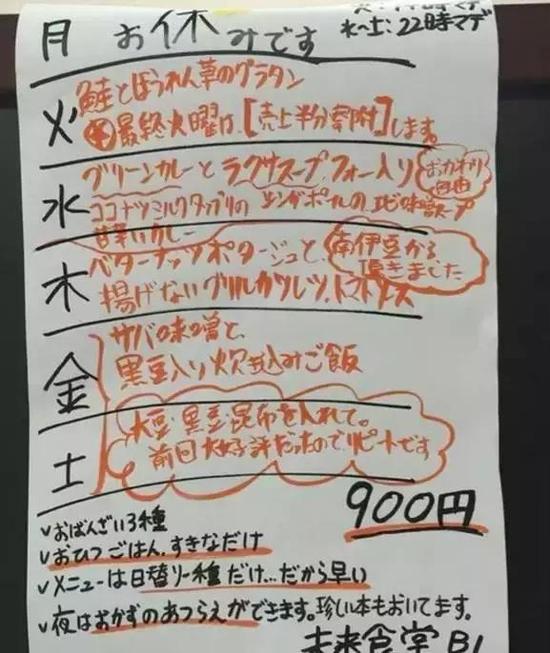 水〜土:22時マデ
月 お休みです
火 鮭とほうれん草のグラタン
最終火曜は、[売上半分寄附]します。
水 グリーンカレーとラクサスープ、フォー入り おかわり自由
ココナツミルクタップリの シンガポールの
甘辛いカレー
木 バターナッツポタージュと、 南伊豆から
頂きました
揚げないグリルカツレツ、トマトソース
金 サバ味噌と、
黒豆入り炊き込みご飯
土 大豆・黒豆・昆布を入れて。
前回大好評だったのでリピートです
900円
✓おばんざい3種
✓おひつごはん、すきなだけ
✓メニューは日替り一種だけ…だから早い
✓夜はおかずのあつらえができます。珍しい本もおいてます。
未来食堂 B1